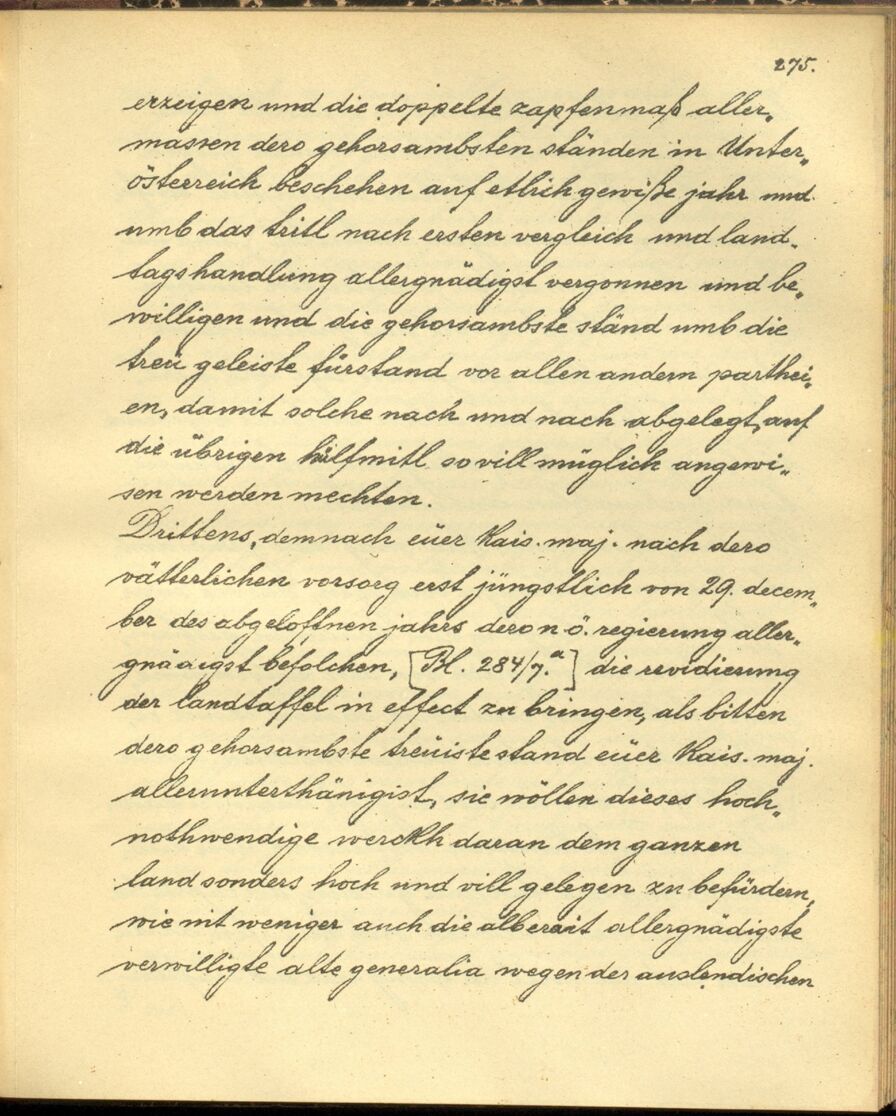 275.
erzeigen und die doppelte zapfenmaß aller„
massen dero gehorsambsten ständen in Unter„
österreich beschehen auf etlich gewiße jahr und
umb das tritl nach ersten vergleich und land„
tagshandlung allergnädigst vergonnen und be„
willigen und die gehorsambste ständ umb die
treu geleiste fürstand vor allen andern parthei„
en, damit solche nach und nach abgelegt, auf
die übrigen hülfmitl so vill müglich angewi„
sen werden mechten.
Drittens, demnach eüer Kais. maj. nach dero
vätterlichen vorsorg erst jüngstlich von 29. decem„
ber des abgeloffnen jahrs dero n. ö. regierung aller„
gnädigst befolchen, [Bl. 284/7.a] die revidierung
der landtaffel in effect zu bringen, als bitten
dero gehorsambste treüiste stand eüer Kais. maj.
allerunterthänigist, sie wöllen dieses hoch„
nothwendige werckh daran dem ganzen
land sonders hoch und vill gelegen zu befürdern,
wie nit weniger auch die alberait allergnädigste
verwilligte alte generalia wegen der auslendischen